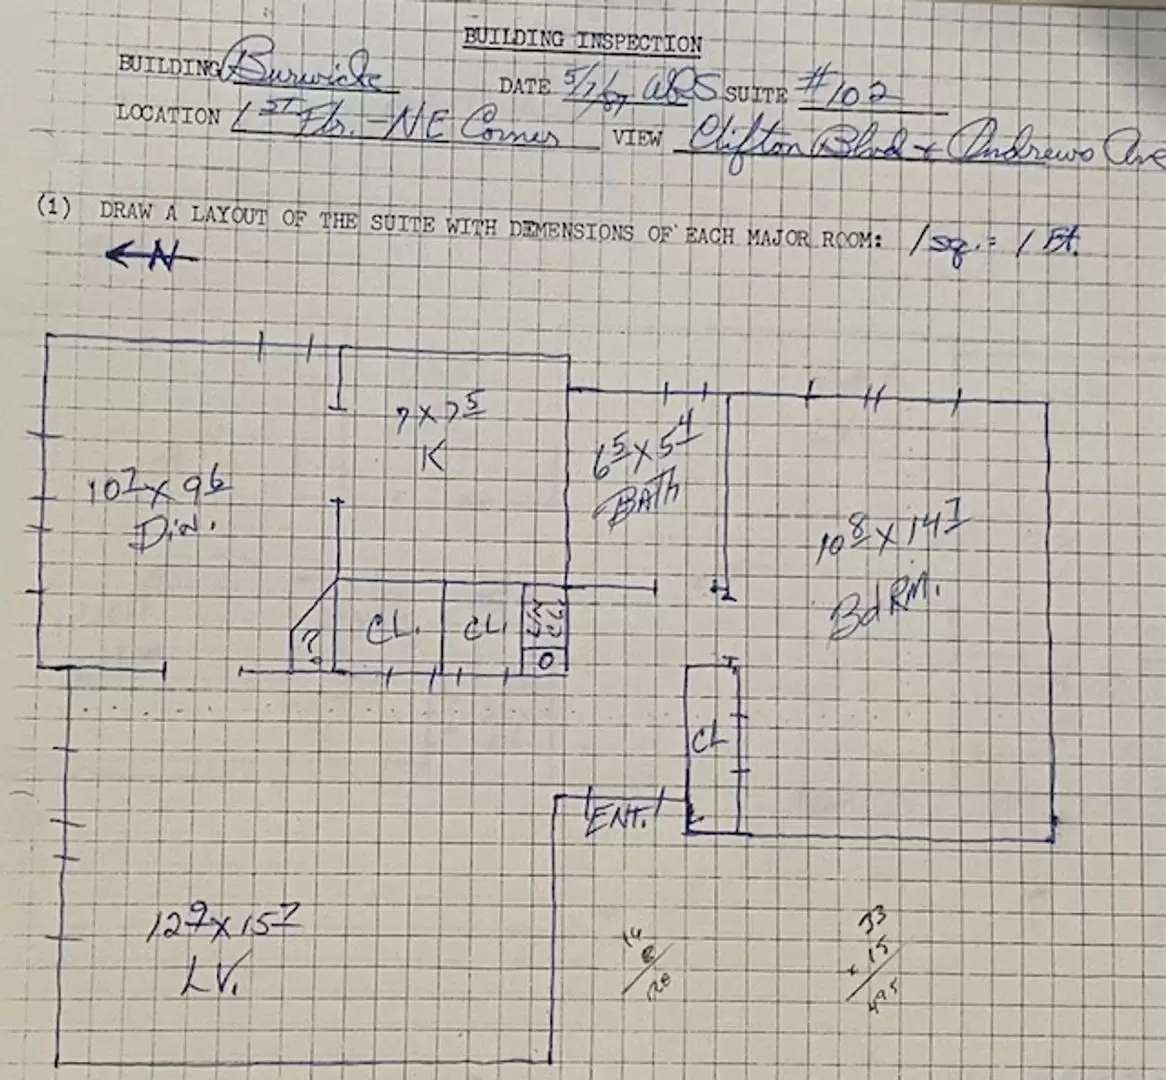 BUILDING INSPECTION
BUILDING Burwick DATE 5/7/87 WRS SUITE #102
LOCATION 1ST Flr. - NE Corner VIEW Clifton Blvd + Andrews Ave
(1) DRAW A LAYOUT OF THE SUITE WITH DEMENSIONS OF EACH MAJOR ROOM: 1 sq. = 1 Ft.
N
7 x 7 5
K
6 5 x 5 4
BATH
10 7 x 9 6
Din.
10 8 x 14 7
Bd RM.
?
CL.
CL.
O
CL
ENT.
12 9 x 15 7
LV.
14
8
33
x 15
495